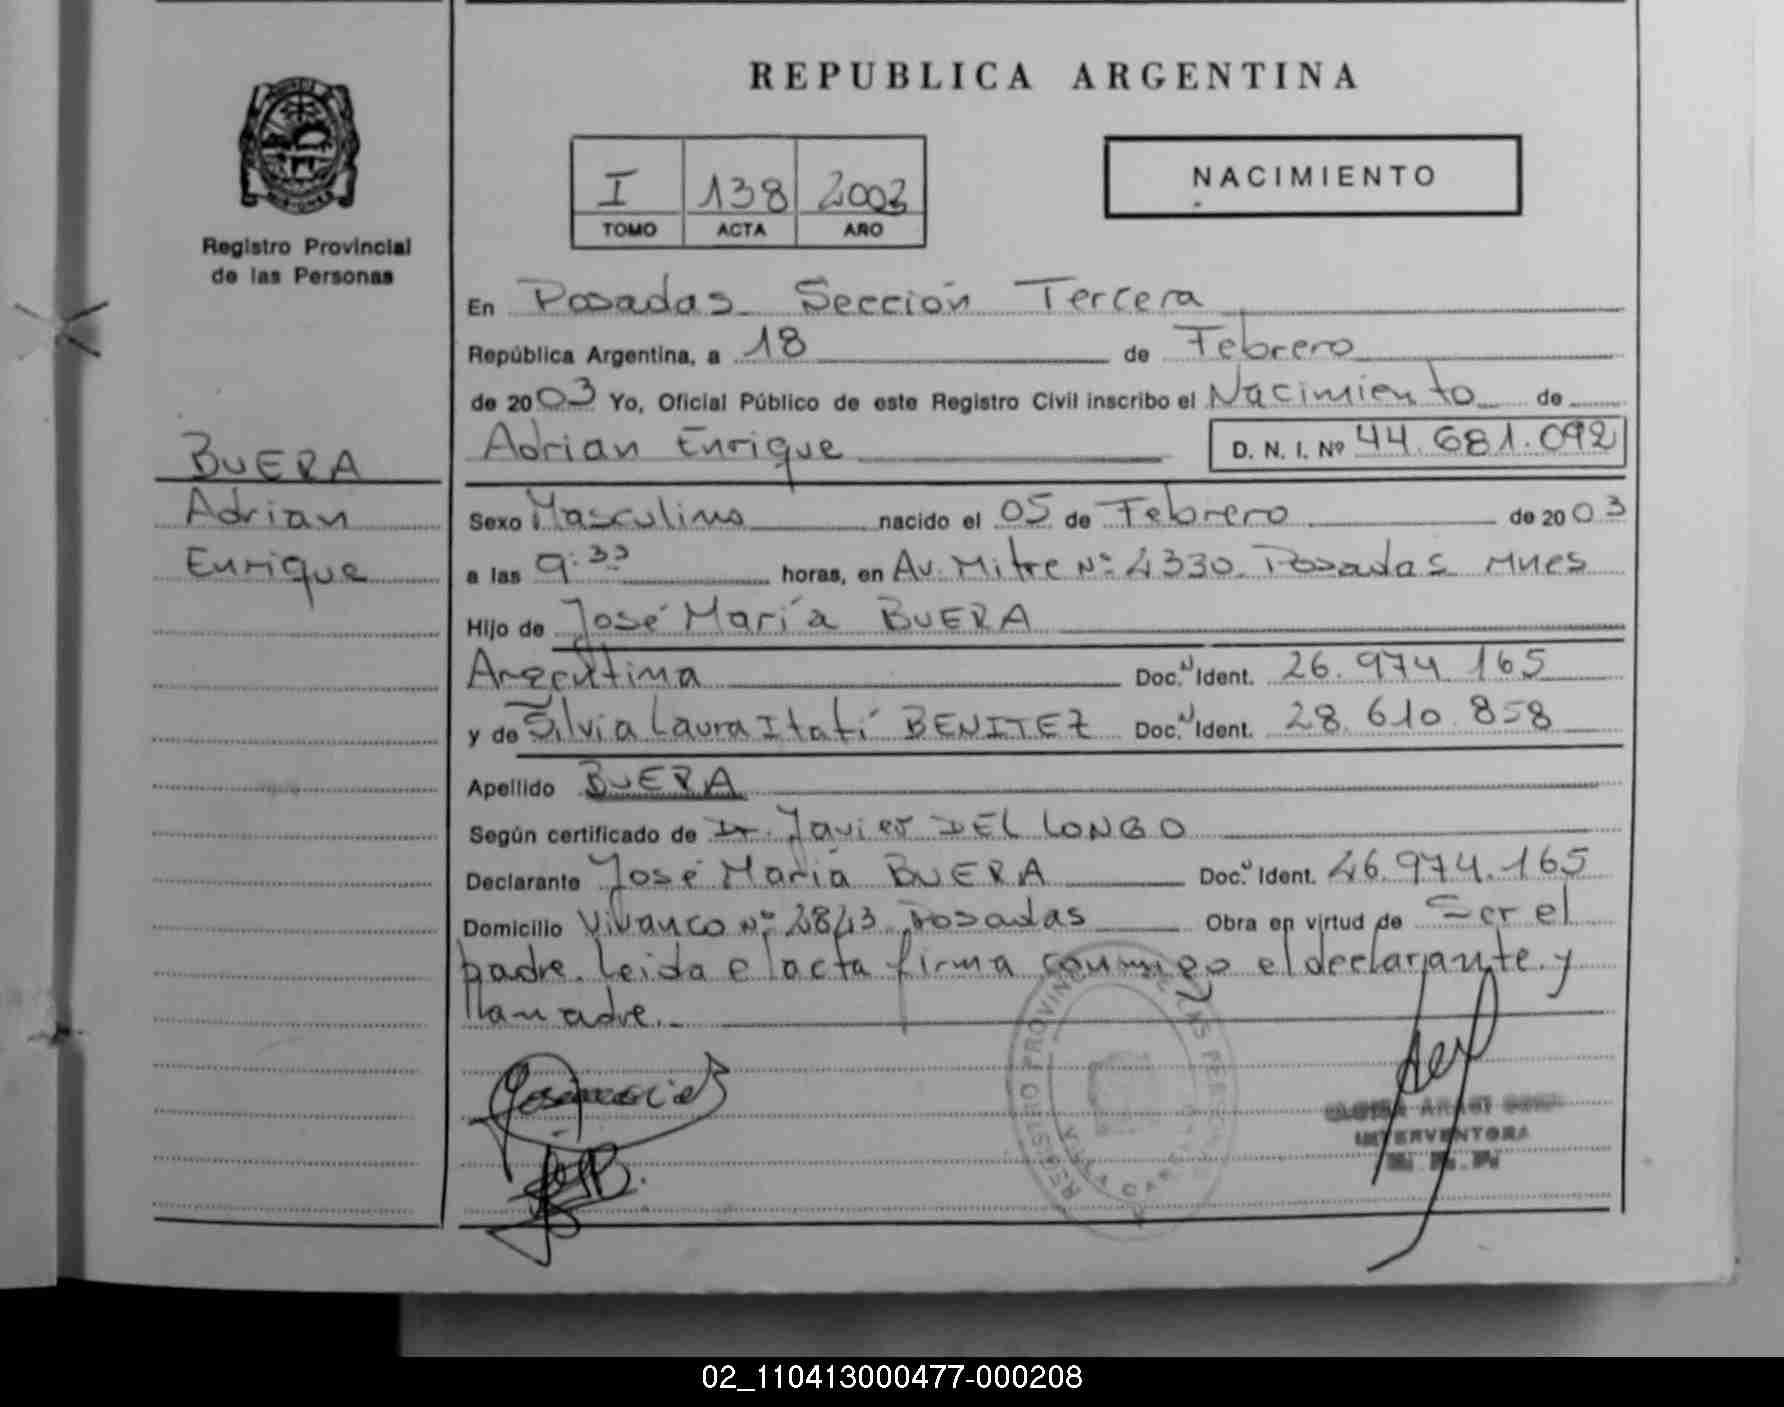 REPUBLICA ARGENTINA
I 138 2003
TOMO ACTA AÑO
NACIMIENTO
Registro Provincial
de las Personas
BUERA
Adrian
Enrique
En Posadas Sección Tercera
República Argentina, a 18 de Febrero
de 2003 Yo, Oficial Público de este Registro Civil inscribo el Nacimiento de
Adrian Enrique D. N. I. Nº 44.681.092
Sexo Masculino nacido el 05 de Febrero de 2003
a las 9:33 horas, en Av. Mitre Nº 2330 Posadas Mnes
Hijo de José María BUERA
Argentina Doc. Ident. 26.974.165
y de Silvia Laura Itatí BENITEZ Doc. Ident. 28.610.858
Apellido BUERA
Según certificado de Dr. Javier DEL LONGO
Declarante José María BUERA Doc. Ident. 26.974.165
Domicilio Vivanco Nº 2823 Posadas Obra en virtud de Ser el
padre. Leida el acta firma conmigo el declarante y
la madre.
REGISTRO PROVINCIAL DE LAS PERSONAS
INTERVENTORA
02_110413000477-000208